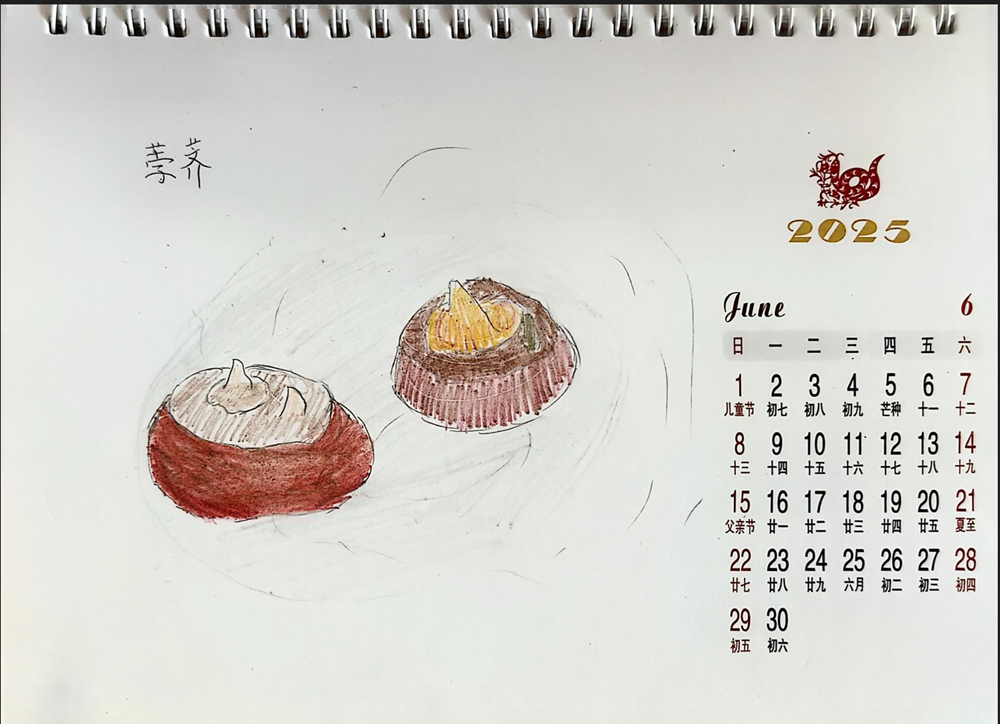 荸荠
2025
June 6
日 一 二 三 四 五 六
1 2 3 4 5 6 7
儿童节 初七 初八 初九 芒种 十一 十二
8 9 10 11 12 13 14
十三 十四 十五 十六 十七 十八 十九
15 16 17 18 19 20 21
父亲节 廿一 廿二 廿三 廿四 廿五 夏至
22 23 24 25 26 27 28
廿七 廿八 廿九 六月 初二 初三 初四
29 30
初五 初六